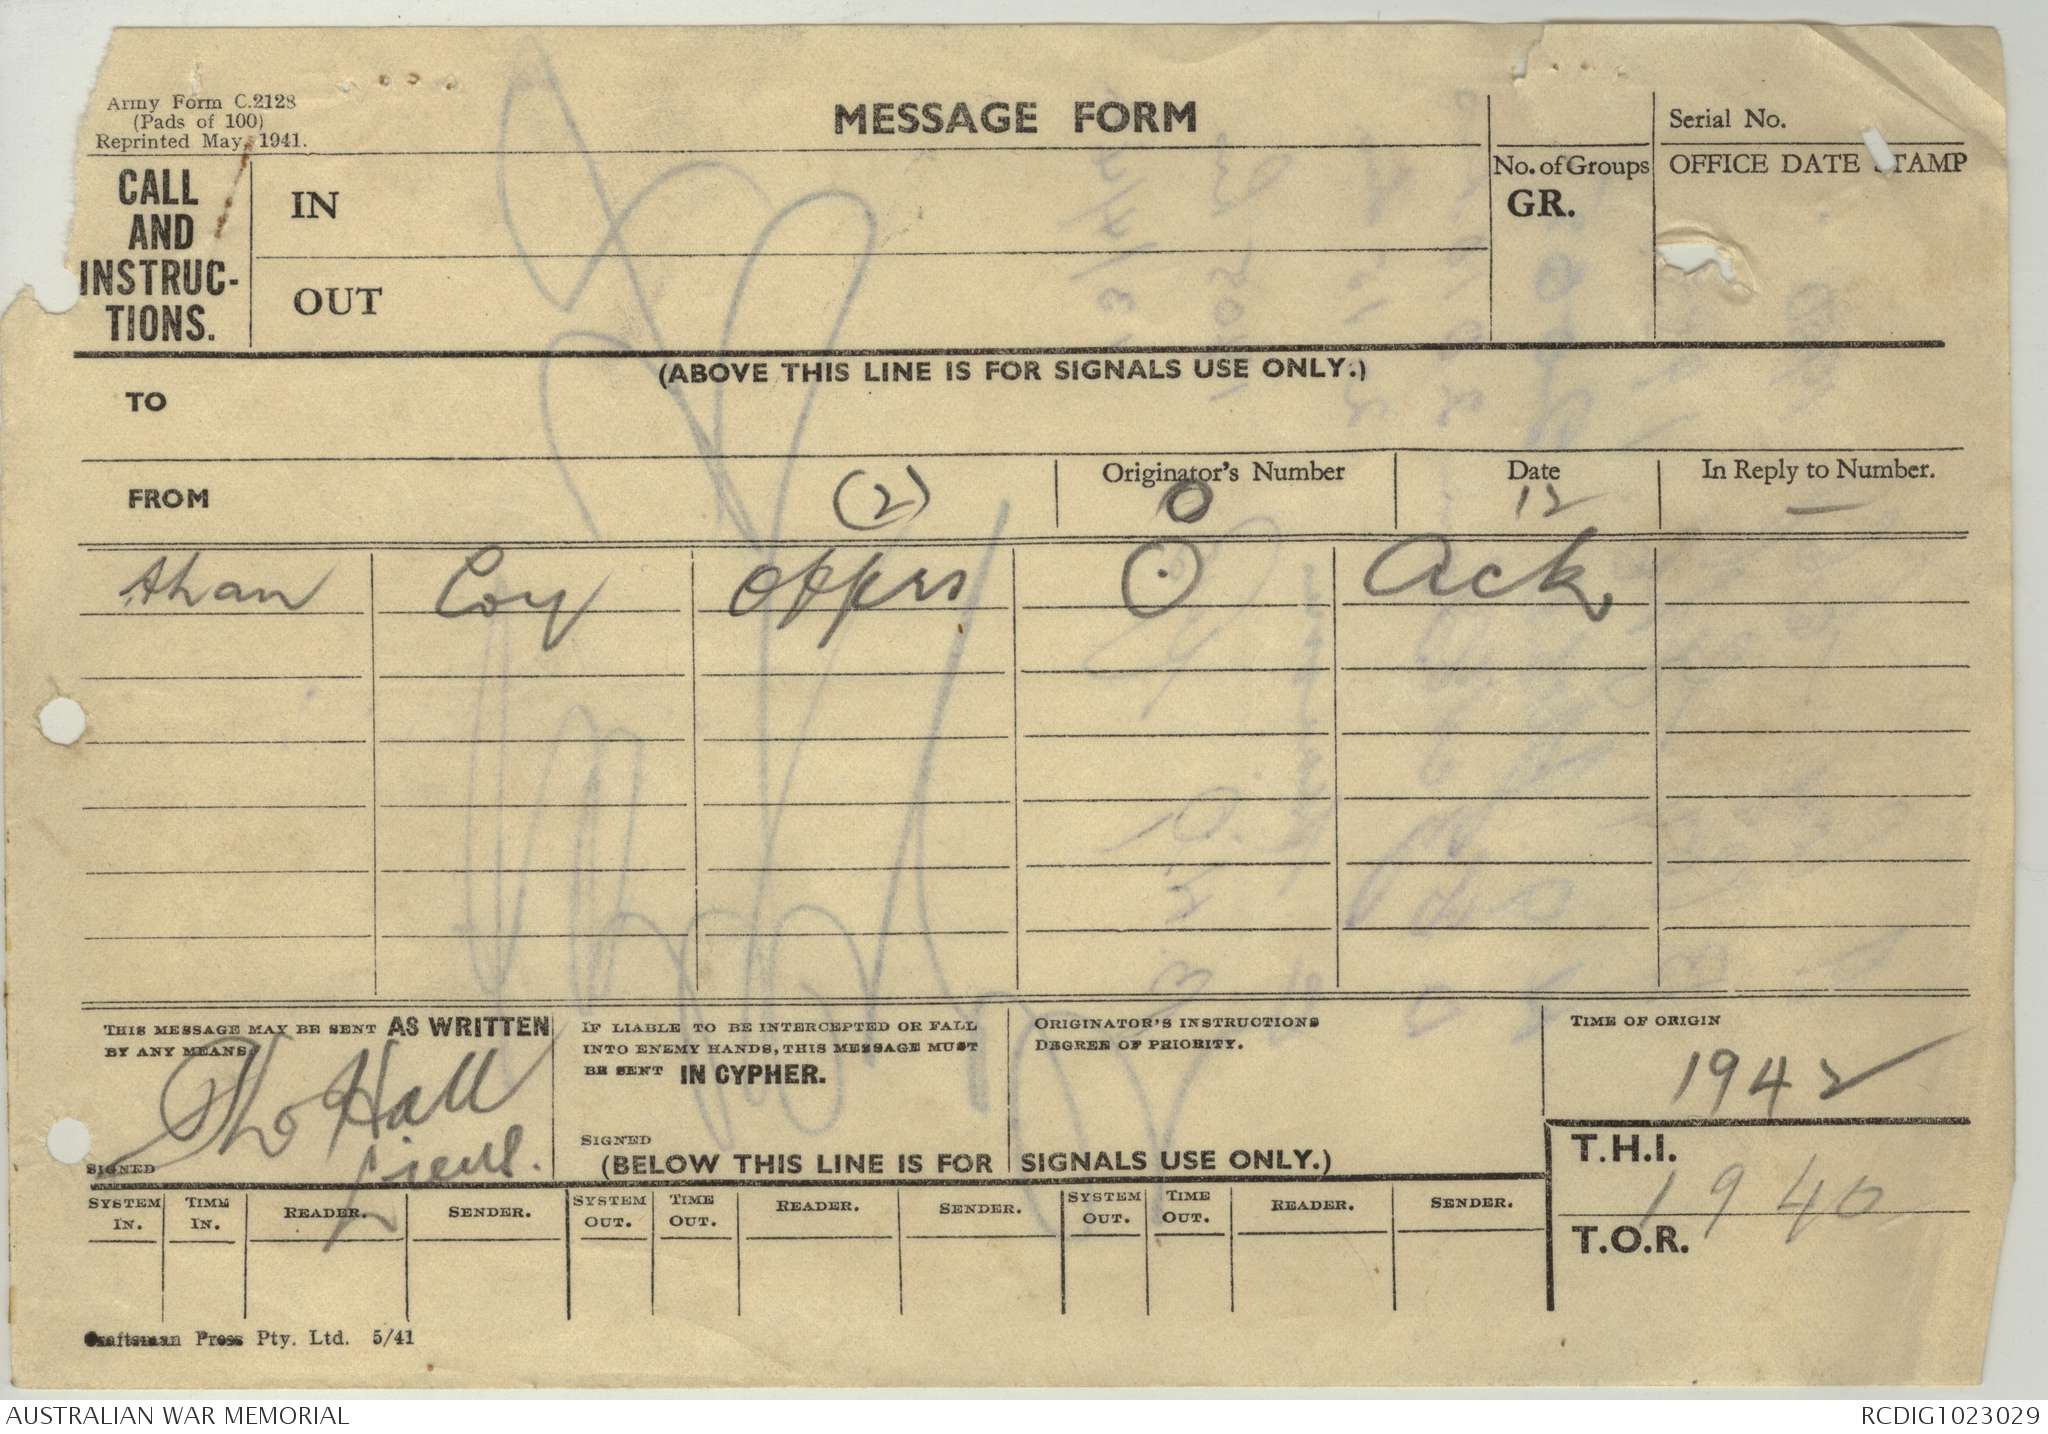 Army Form C.2128
(Pads of 100)
Reprinted May, 1941.
MESSAGE FORM
Serial No.
No. of Groups
GR.
OFFICE DATE STAMP
CALL
AND
INSTRUC-
TIONS.
IN
OUT
(ABOVE THIS LINE IS FOR SIGNALS USE ONLY.)
TO
FROM
(2)
Originator's Number
O
Date
12
In Reply to Number.
—
than Coy offrs ⊙ Ack
THIS MESSAGE MAY BE SENT AS WRITTEN
BY ANY MEANS.
Tho Hall
Lieut.
SIGNED
IF LIABLE TO BE INTERCEPTED OR FALL
INTO ENEMY HANDS, THIS MESSAGE MUST
BE SENT IN CYPHER.
SIGNED
ORIGINATOR'S INSTRUCTIONS
DEGREE OF PRIORITY.
TIME OF ORIGIN
1942
(BELOW THIS LINE IS FOR SIGNALS USE ONLY.)
T.H.I.
1940
T.O.R.
SYSTEM IN. TIME IN. READER. SENDER. SYSTEM OUT. TIME OUT. READER. SENDER. SYSTEM OUT. TIME OUT. READER. SENDER.
Craftsman Press Pty. Ltd. 5/41
AUSTRALIAN WAR MEMORIAL
RCDIG1023029